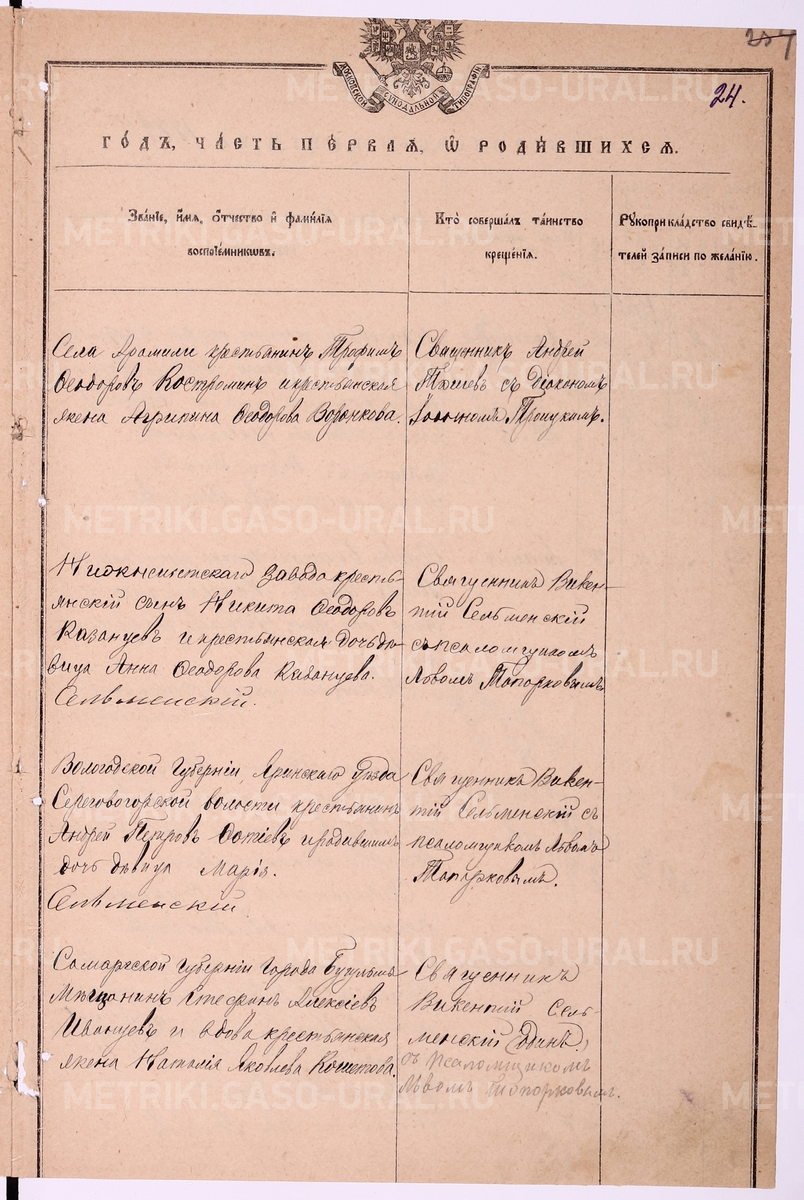 257
24.
МОСКОВСКОЙ СѴНОДАЛЬНОЙ ТИПОГРАФІИ
ГОДЪ, ЧАСТЬ ПЕРВАЯ, Ѡ РОДИВШИХСЯ.
Званіе, имя, отчество и фамилія
воспріемниковъ.
Кто совершалъ таинство
крещенія.
Рукоприкладство свидѣ-
телей записи по желанію.
Села Арамили крестьянинъ Трофимъ
Ѳеодоровъ Костроминъ и крестьянская
жена Агрипина Ѳеодорова Воронкова.
Священникъ Андрей
с Діакономъ
Іоанномъ Троицкимъ.
Нижнесысетскаго завода кресть-
янскій сынъ Никита Ѳеодоровъ
Казанцевъ и крестьянская дочь дѣ-
вица Анна Ѳеодорова Казанцева.
Сельменскій.
Священникъ Викен-
тій Сельменскій
съ псаломщикомъ
Львомъ Топорковымъ
Вологодской Губерніи Яринскаго уѣзда
Сереговогорской волости крестьянинъ
Андрей Петровъ и родившимъ
дочь дѣвица Марія.
Сельменскій
Священникъ Викен-
тій Сельменскій съ
псаломщикомъ Львомъ
Топорковымъ.
Самарской Губерніи города Бугульмы
Мѣщанинъ Стефанъ Алексіевъ
Иванцевъ и вдова крестьянская
жена Наталія Яковлева Кошетова.
Священникъ
Викентій Сель-
менскій Одинъ,
съ псаломщикомъ
Львомъ Топорковым.
METRIKI.GASO-URAL.RU